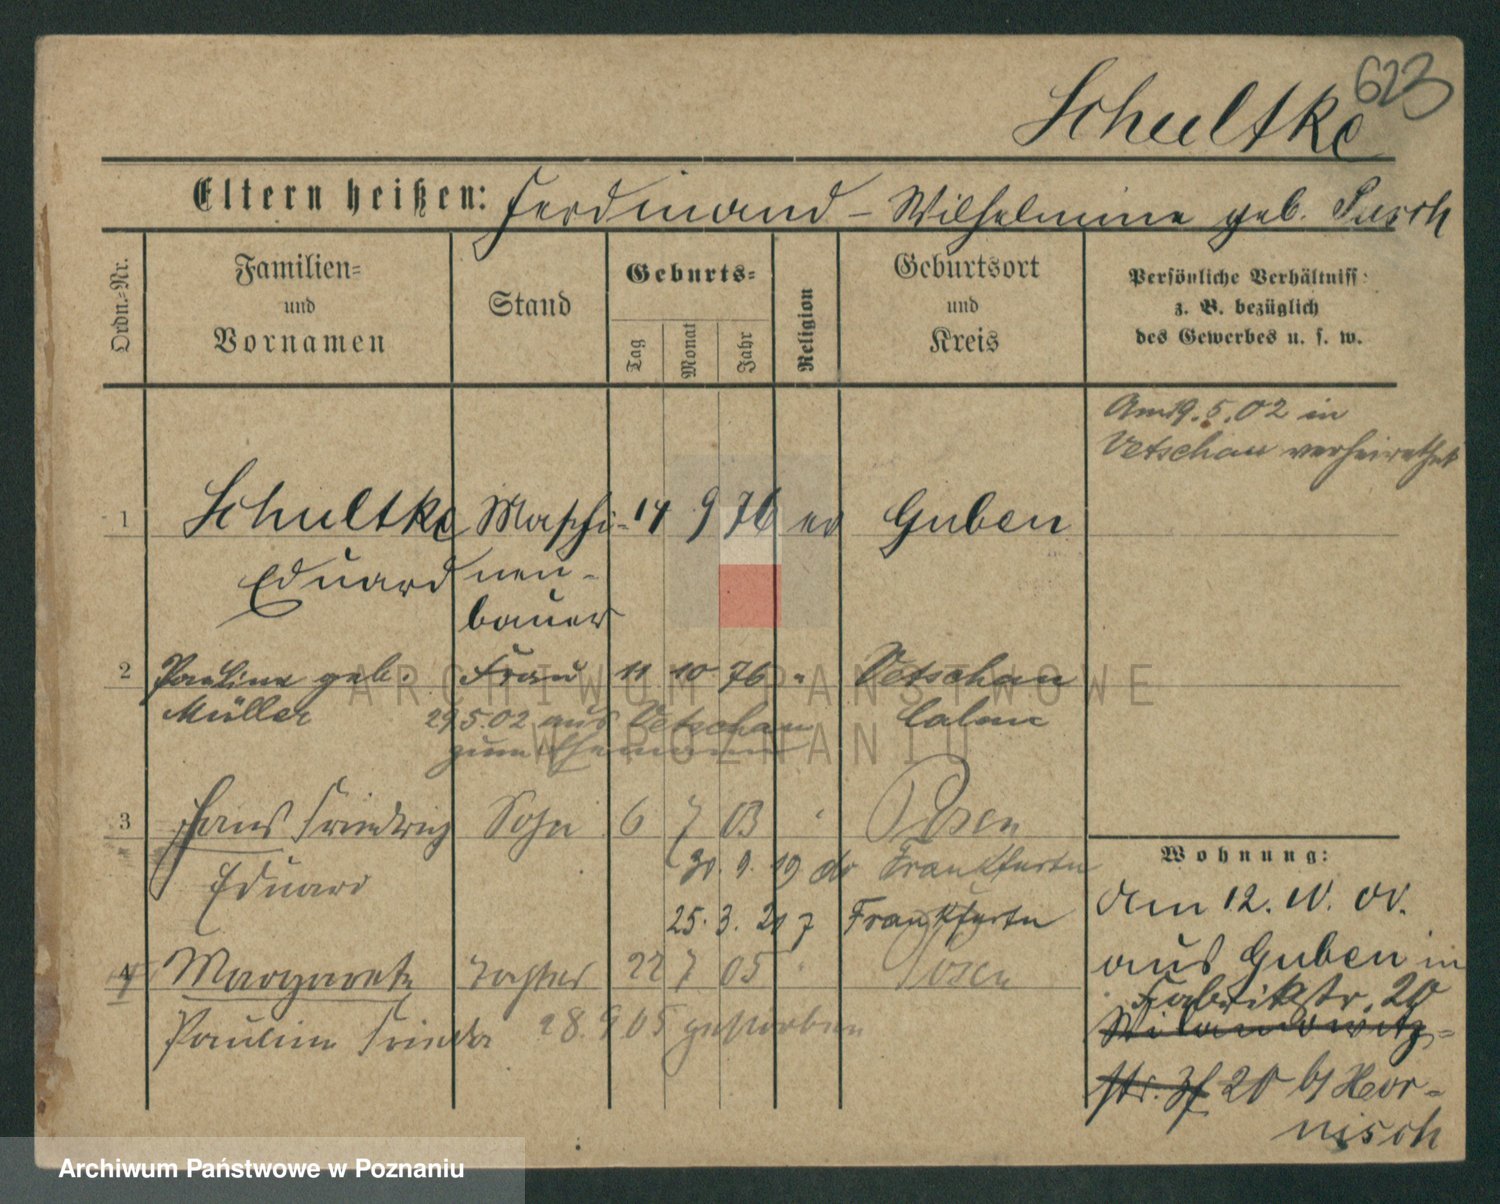 623
Schultke
Eltern heißen: Ferdinand – Wilhelmine geb.
Ordn.-Nr.
Familien-
und
Vornamen
Stand
Geburts-
Tag
Monat
Jahr
Religion
Geburtsort
und
Kreis
Persönliche Verhältniss
z. B. bezüglich
des Gewerbes u. s. w.
Am 19.5.02 in
Vetschau verheirathet
1 Schultke Maschi- 14 9 76 ev Guben
Eduard nen-
bauer
2 Pauline geb. Frau 11 10 76 " Vetschau
Müller 29.5.02 aus Vetschau Calau
zum Ehemann
3 Hans Friedrich Sohn 6 7 03 " Posen
Eduard
30. 9. 19 Frankfurt
25. 3. Frankfurt
4 Margarete Tochter 22 7 05 " Posen
Pauline Frieda 28.9.05 gestorben
Wohnung:
Am 12.
aus Guben in
Fabrikstr. 20
str. 20 b/ Hor-
nisch
ARCHIWUM PAŃSTWOWE
W POZNANIU
Archiwum Państwowe w Poznaniu